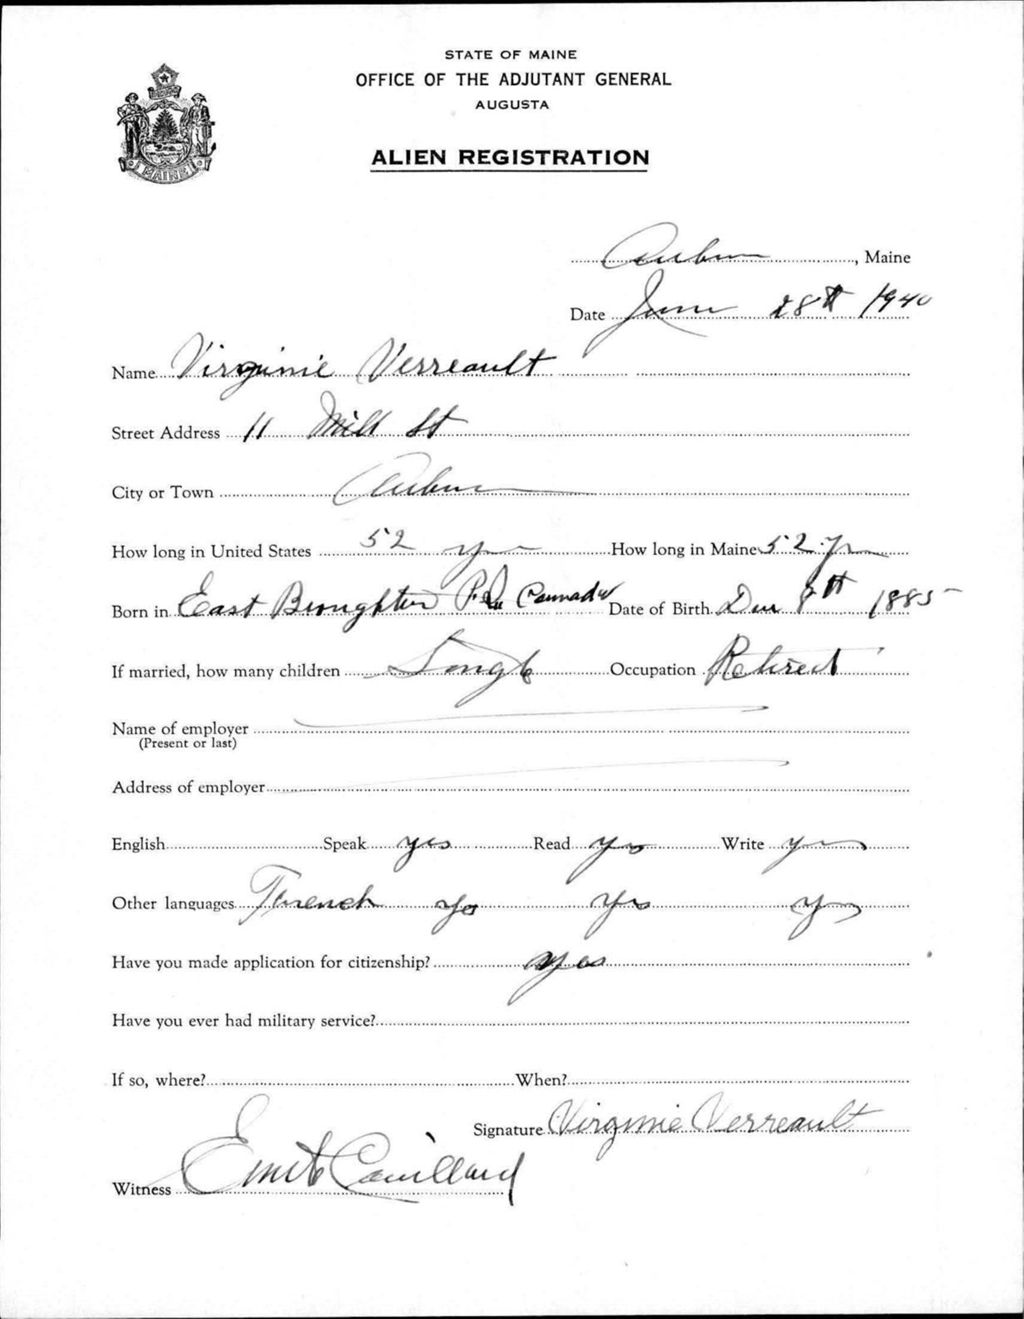 STATE OF MAINE
OFFICE OF THE ADJUTANT GENERAL
AUGUSTA
ALIEN REGISTRATION
MAINE
Auburn, Maine
Date June 28th 1940
Name Virginie Verreault
Street Address 11 Mill St
City or Town Auburn
How long in United States 52 yrs How long in Maine 52 yrs
Born in East Broughton P.Q. Cannada Date of Birth 8th 1885
If married, how many children Single Occupation Retired
Name of employer
(Present or last)
Address of employer
English Speak yes Read yes Write yes
Other languages French yes yes yes
Have you made application for citizenship? yes
Have you ever had military service?
If so, where? When?
Signature Virginie Verreault
Witness Couillard